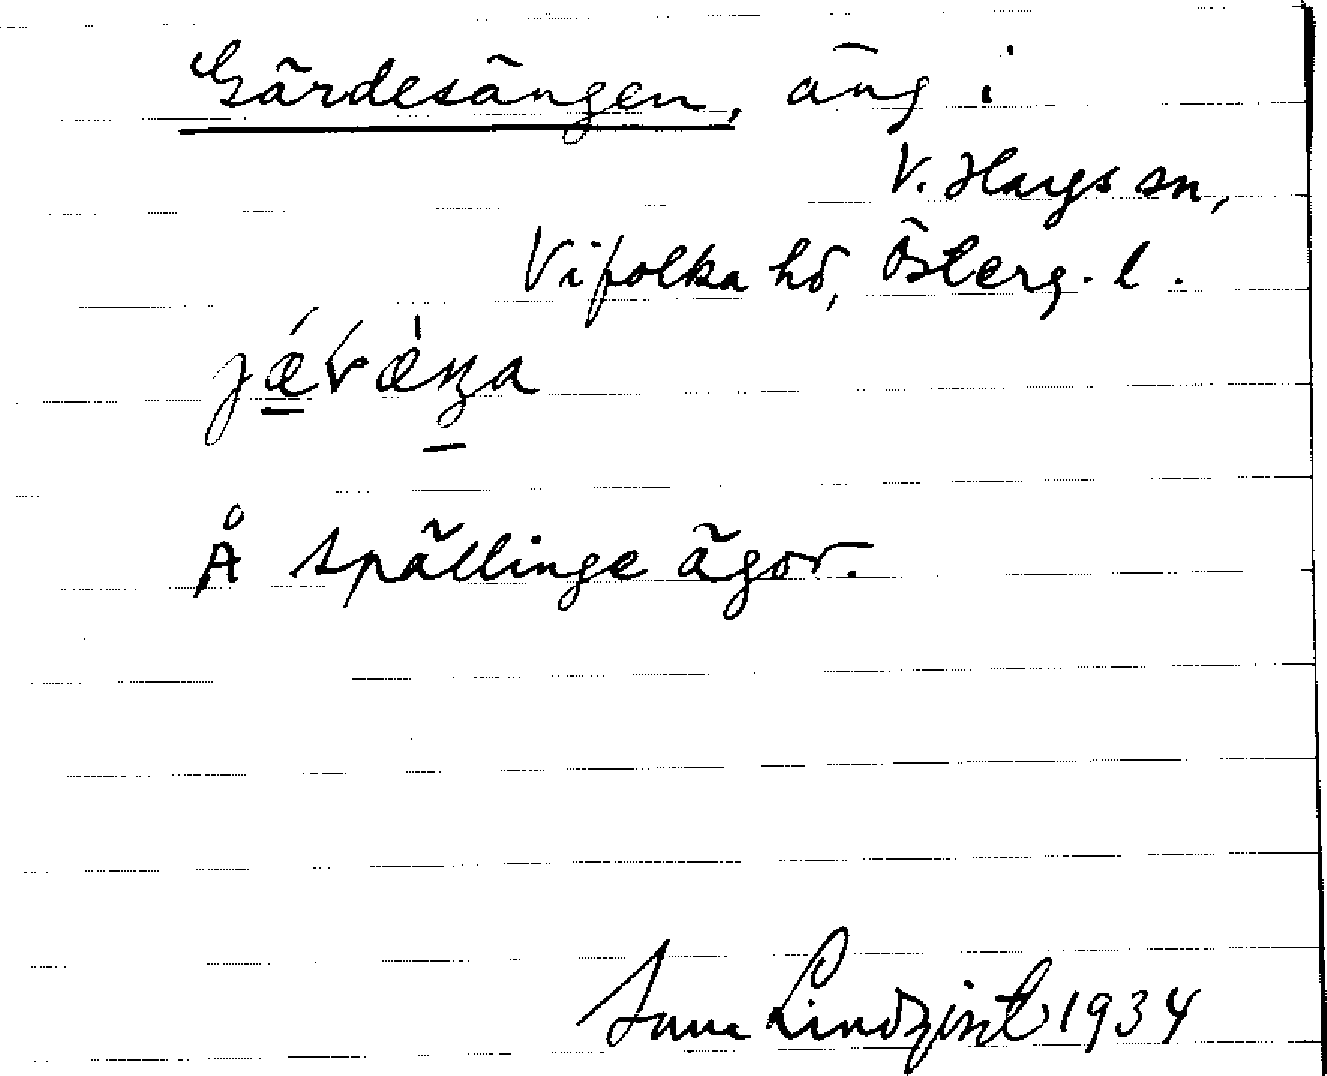 Gärdesängen, äng i
V. Hargs sn,
Vifolka hd, Österg. l.
Å Spällinge ägor.
Sune Lindqvist 1934